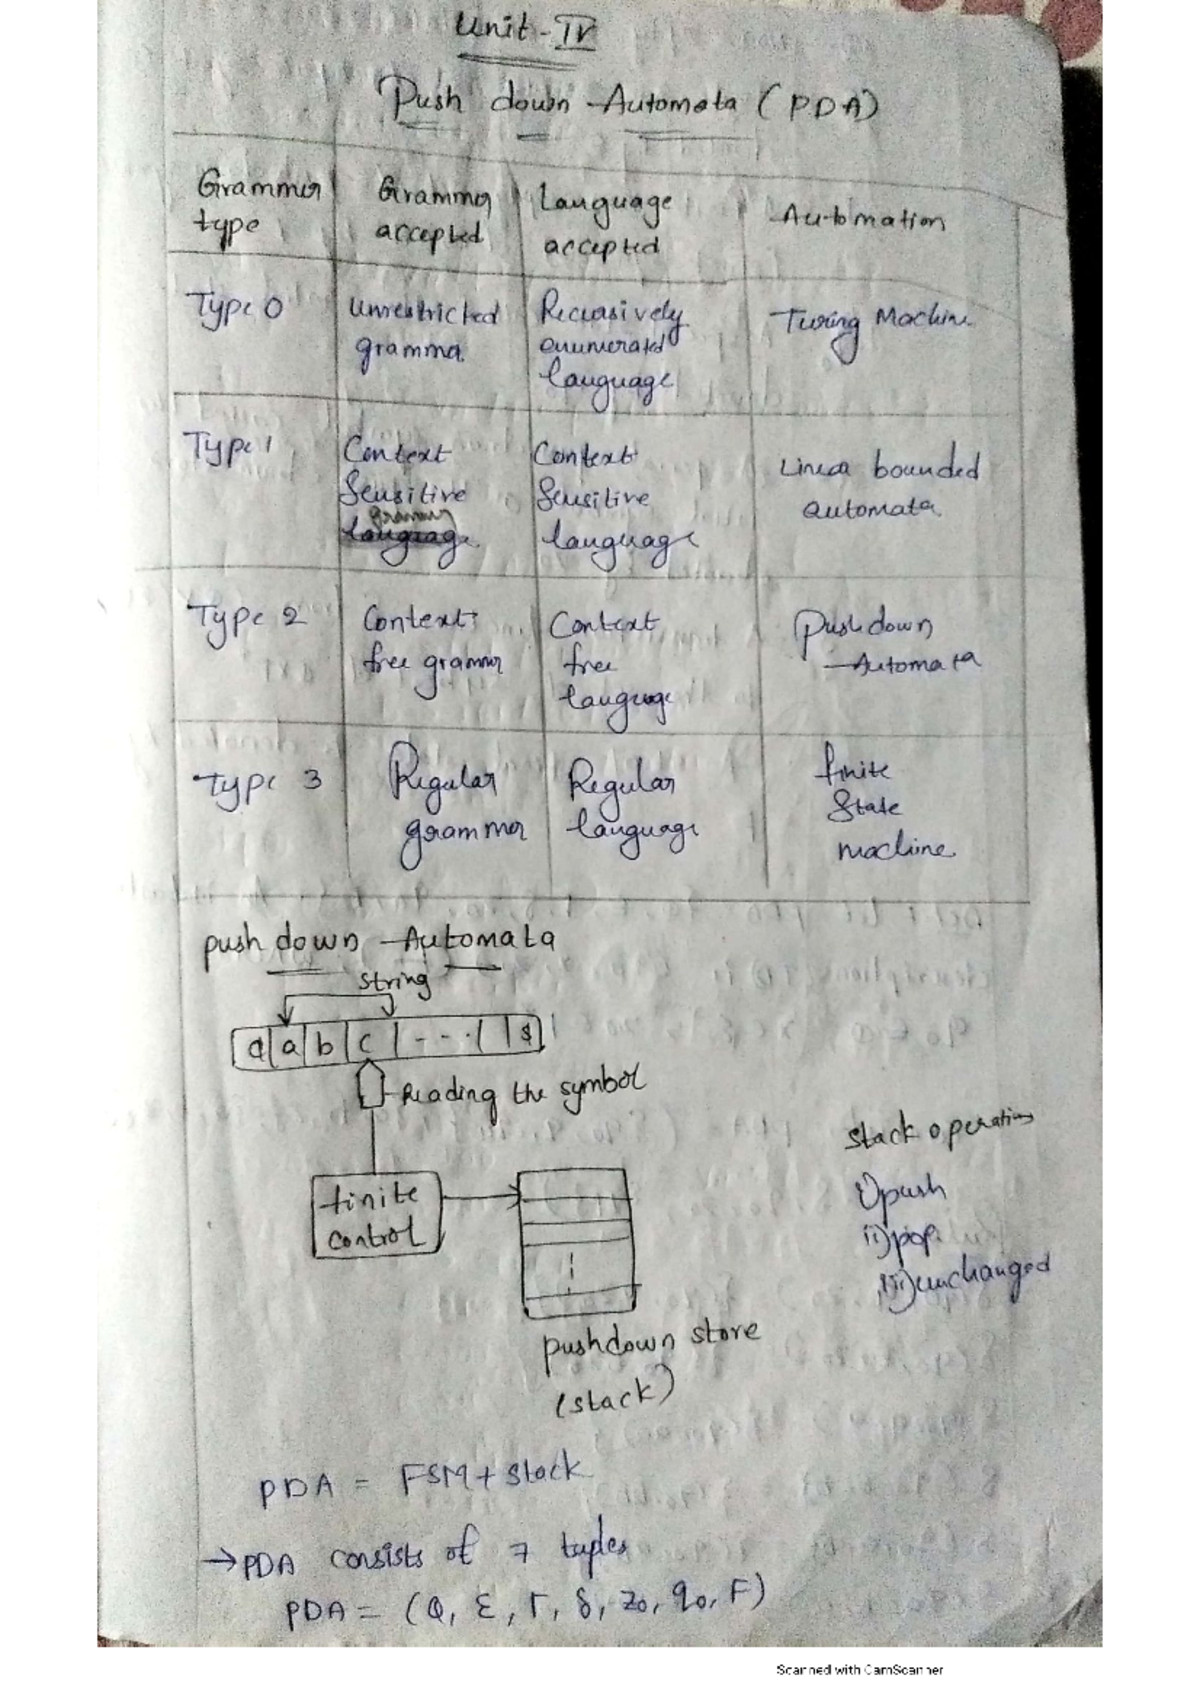 Unit-IV
Push down -Automata (PDA)
Grammer type
Grammer accepted
Language accepted
Automation
Type 0
Unrestricted gramma
Recursively enumerated language
Turing Machine
Type 1
Context Sensitive grammer language
Context Sensitive language
Linear bounded automata
Type 2
Context free grammer
Context free language
Pushdown -Automata
Type 3
Regular grammer
Regular language
finite State machine
push down -Automata
string
a a b c - - . $
Reading the symbol
finite control
stack operations
i) push
ii) pop
iii) unchanged
pushdown store
(stack)
PDA = FSM + stack
→ PDA consists of 7 tuples
PDA = (Q, Ɛ, Γ, δ, Z0, q0, F)
Scanned with CamScanner